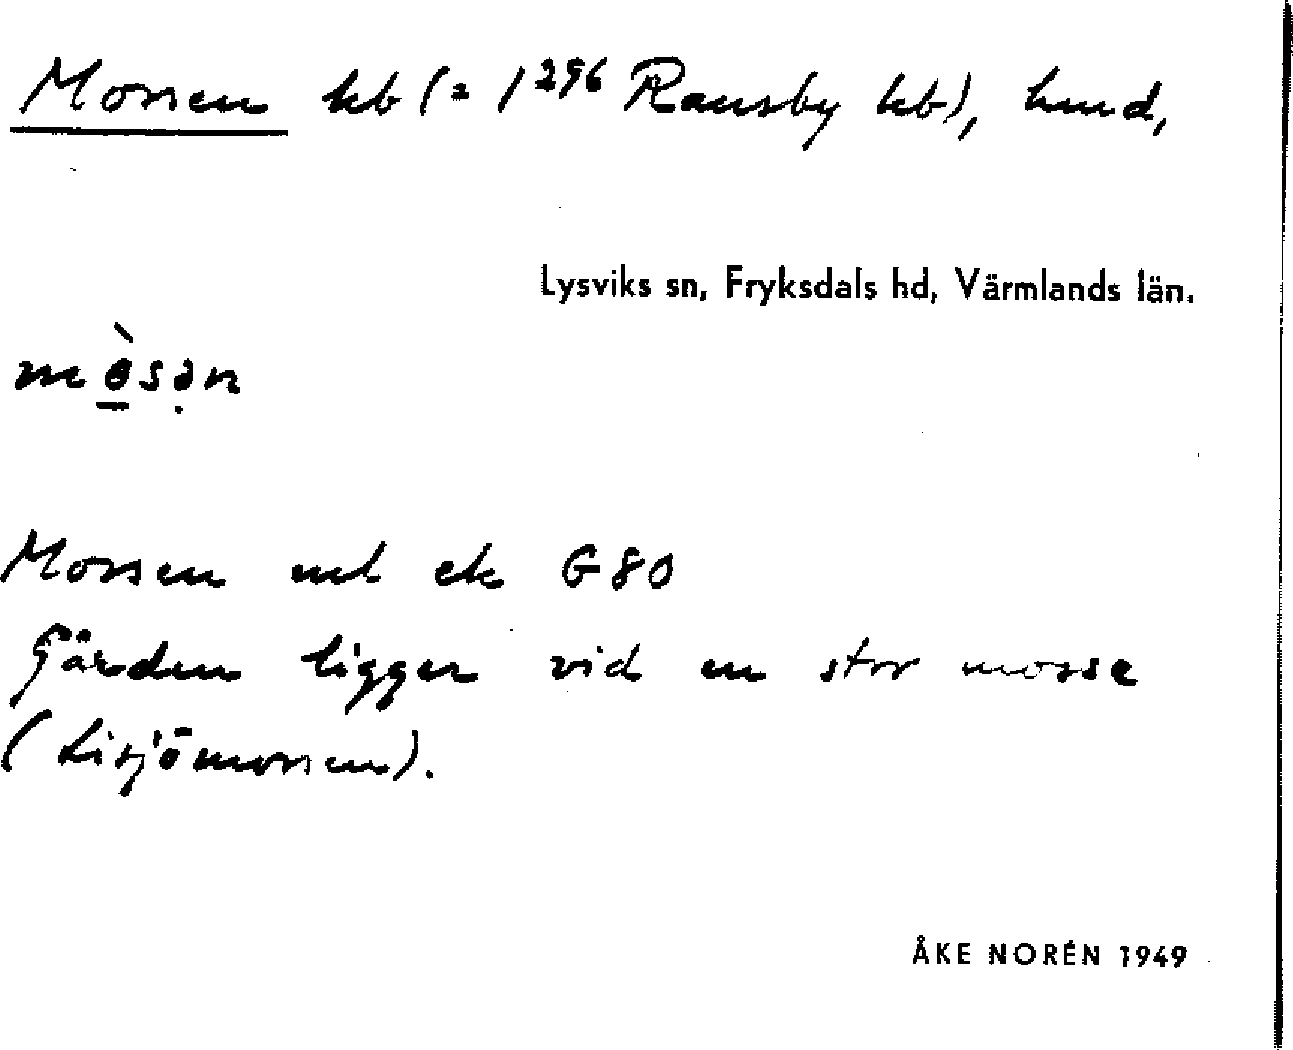 Mossen kb (= 1²⁹⁶ Ransby kb), hmd,
Lysviks sn, Fryksdals hd, Värmlands län.
mòsən
Mossen uel ek G 80
Gården ligger vid en stor mosse
(Lisjömossen).
ÅKE NORÉN 1949